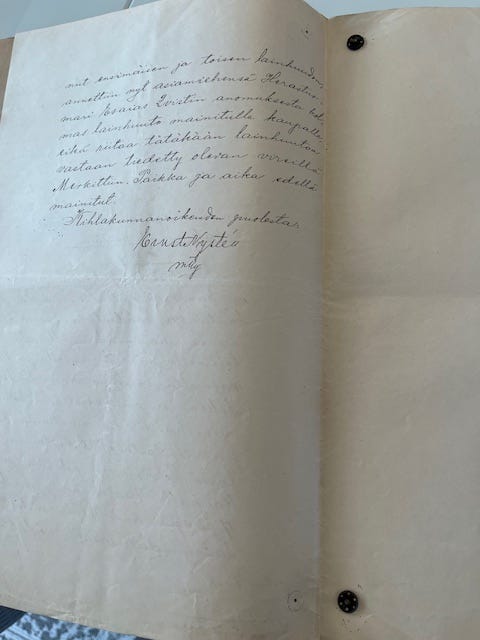 nut ensimäisen ja toisen lainhuudon,
annettiin nyt asiamiehensä Herastuo-
mari Esaias Qvistin anomuksesta kol
mas lainhuuto mainitulle kaupalle
eikä riitaa tätäkään lainhuutoa
vastaan tiedetty olevan vireillä
Merkittiin. Paikka ja aika edellä
mainitut.
Kihlakunnanoikeuden puolesta:
Ernst Nystén